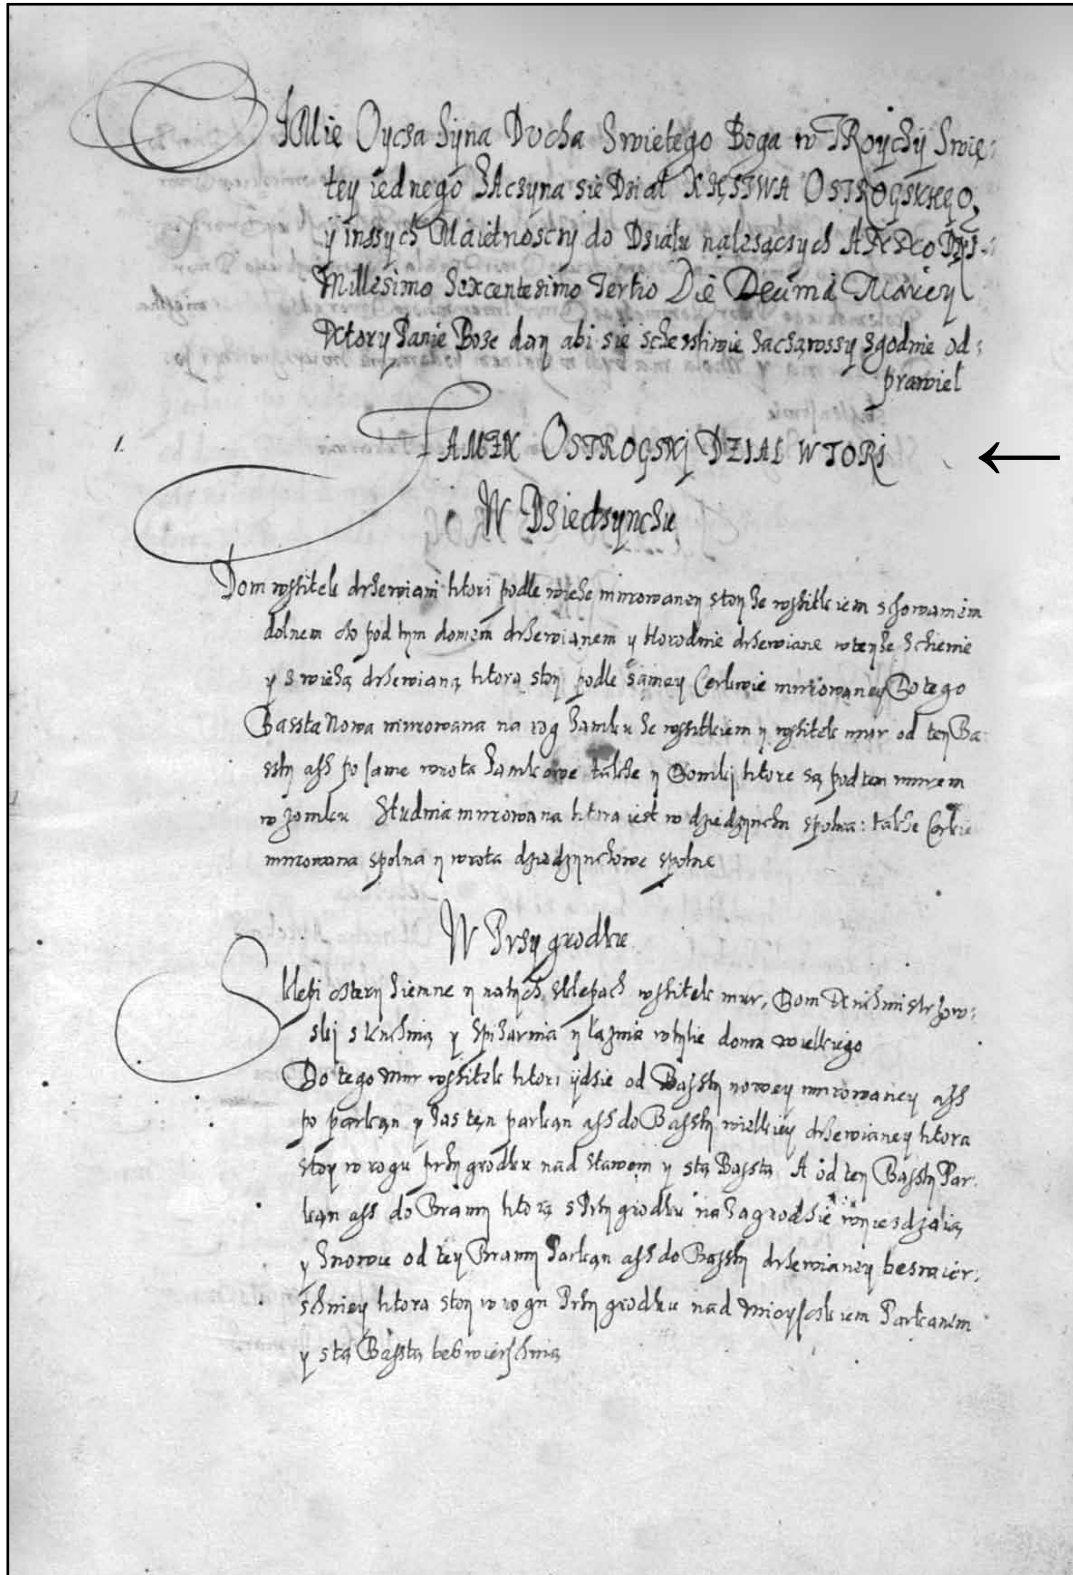 IMię Oycsa Syna Ducha Swietego Boga w TRoyczy Swię:
tey iednego SAcsyna sie Dsiał XięSTWA OSTROGSKIEGO,
y inssych Maiętnosczy do Dsiału nalesącsych
Millesimo Sexcentesimo Tertio Die Decima
Ktory Panie Bose day abi się sczesliwie sgodnie od:
prawieł
1. SAMEK OSTROGSKj DZIAŁ WTORj
W Dsiedsynchu
Dom wssitek drsewiani ktori podle wieże murowaney stoy se wssitkiem schowaniem
dolnem co pod tym domem drsewianem y Horodnie drsewiane wteyse Schienie
y s wieżą drsewianą ktora stoy podle samey Cerkwie murowaney Do tego
Basśta Nowa murowana na rog Samku se wssitkiem y wssitek mur od tey Ba
ssty ass po same wrota Samkowe także y Domki ktore są pod tem murem
w zomku Studnia murowana ktora iest w dziedzynchu spolna: także Cerkie
murowana spolna y wrota dziedzynchowe spolne
W Prsy grodku
Sklepi cstery Siemne y natych Sklepach wssitek mur, Dom Kuchmistrzow:
skj s kuchnią y Spisarnia y łaznia wtylie domu wielkiego
Do tego mur wssitek ktori ydsie od Bassty nowey murowaney ass
po parkan y Sas ten parkan ass do Bassty wielkiey drsewianey ktora
stoy w rogu przygrodku nad Stawem y stą Basstą A od tey Bassty Par:
kan ass do Bramy ktorą s Przygrodku na Sagrodsie wyiesdzaią
y Snowu od tey Bramy Parkan ass do Bassty drsewianey beswier:
schniey ktora stoy w rogu Przygrodku nad Mieysckiem Parkanem
y stą Basstą beswierschnią